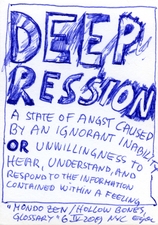 DEEP
RESSION
A STATE OF ANGST CAUSED
BY AN IGNORANT INABILITY
OR UNWILLINGNESS TO
HEAR, UNDERSTAND, AND
RESPOND TO THE INFORMATION
CONTAINED WITHIN A FEELING.
"MONDO ZEN/HOLLOW BONES,
GLOSSARY" 6 IV NYC